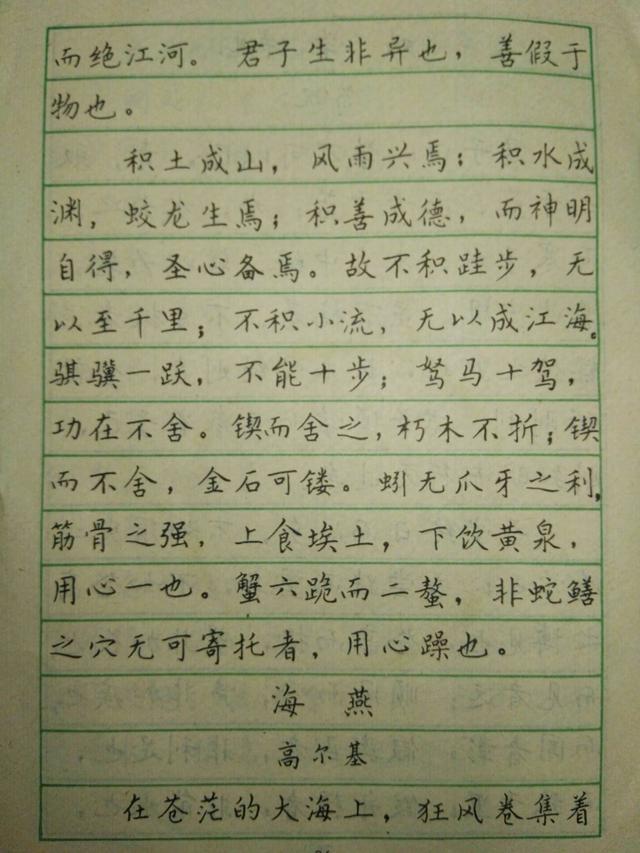 而绝江河。君子生非异也，善假于
物也。
积土成山，风雨兴焉；积水成
渊，蛟龙生焉；积善成德，而神明
自得，圣心备焉。故不积跬步，无
以至千里；不积小流，无以成江海。
骐骥一跃，不能十步；驽马十驾，
功在不舍。锲而舍之，朽木不折；锲
而不舍，金石可镂。蚓无爪牙之利，
筋骨之强，上食埃土，下饮黄泉，
用心一也。蟹六跪而二螯，非蛇鳝
之穴无可寄托者，用心躁也。
海燕
高尔基
在苍茫的大海上，狂风卷集着